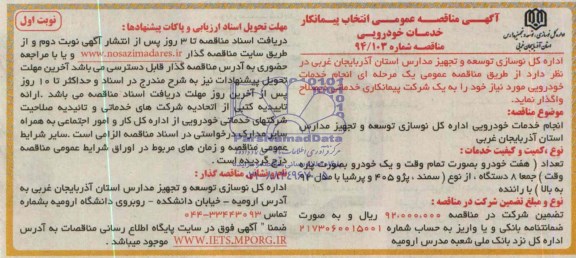 نوبت اول
آگهی مناقصه عمومی انتخاب پیمانکار
خدمات خودرویی
مناقصه شماره ۹۴/۱۰۳
اداره کل نوسازی توسعه و تجهیز مدارس استان آذربایجان غربی در
نظر دارد از طریق مناقصه عمومی یک مرحله ای انجام خدمات
خودرویی مورد نیاز خود را به یک شرکت پیمانکاری خدماتی
واگذار نماید.
موضوع مناقصه:
انجام خدمات خودرویی اداره کل نوسازی توسعه و تجهیز مدارس
استان آذربایجان غربی
نوع ،کمیت و کیفیت خدمات :
تعداد ( هفت خودرو بصورت تمام وقت و یک خودرو بصورت پاره
وقت ) جمعا ۸ دستگاه ، از نوع ( سمند ، پژو ۴۰۵ و پرشیا با مدل
به بالا ) با راننده
نوع و مبلغ تضمین شرکت در مناقصه :
تضمین شرکت در مناقصه ۹۲.۰۰۰.۰۰۰ ریال و به صورت
ضمانتنامه بانکی و یا واریز به حساب شماره ۲۱۷۳۰۶۰۰۱۵۰۰۱
اداره کل نزد بانک ملی شعبه مدرس ارومیه
مهلت تحویل اسناد ارزیابی و پاکات پیشنهادها :
دریافت اسناد مناقصه تا ۳ روز پس از انتشار آگهی نوبت دوم و از
طریق سایت مناقصه گذار www.nosazimadares.ir و یا با مراجعه
حضوری به آدرس مناقصه گذار قابل دسترسی می باشد آخرین مهلت
تحویل پیشنهادات نیز به شرح مندرج در اسناد و حداکثر تا ۱۰ روز
پس از آخرین روز مهلت دریافت اسناد مناقصه می باشد .ارائه
تاییدیه کتبی از اتحادیه شرکت های خدماتی و تائیدیه صلاحیت
شرکتهای خدماتی خودرویی از اداره کل کار و امور اجتماعی به همراه
سایر مدارک درخواستی در اسناد مناقصه الزامی است .سایر شرایط
عمومی مناقصه و زمان های مربوط در اوراق شرایط عمومی مناقصه
درج گردیده است .
نام ونشانی مناقصه گذار :
اداره کل نوسازی توسعه و تجهیز مدارس استان آذربایجان غربی به
آدرس ارومیه - خیابان دانشکده - روبروی دانشگاه ارومیه بشماره
تماس ۳۳۴۴۳۰۹۳-۰۴۴
ضمنا " آگهی فوق در سایت پایگاه اطلاع رسانی مناقصات به آدرس
WWW.IETS.MPORG.IR موجود میباشد .
ParsNamadData